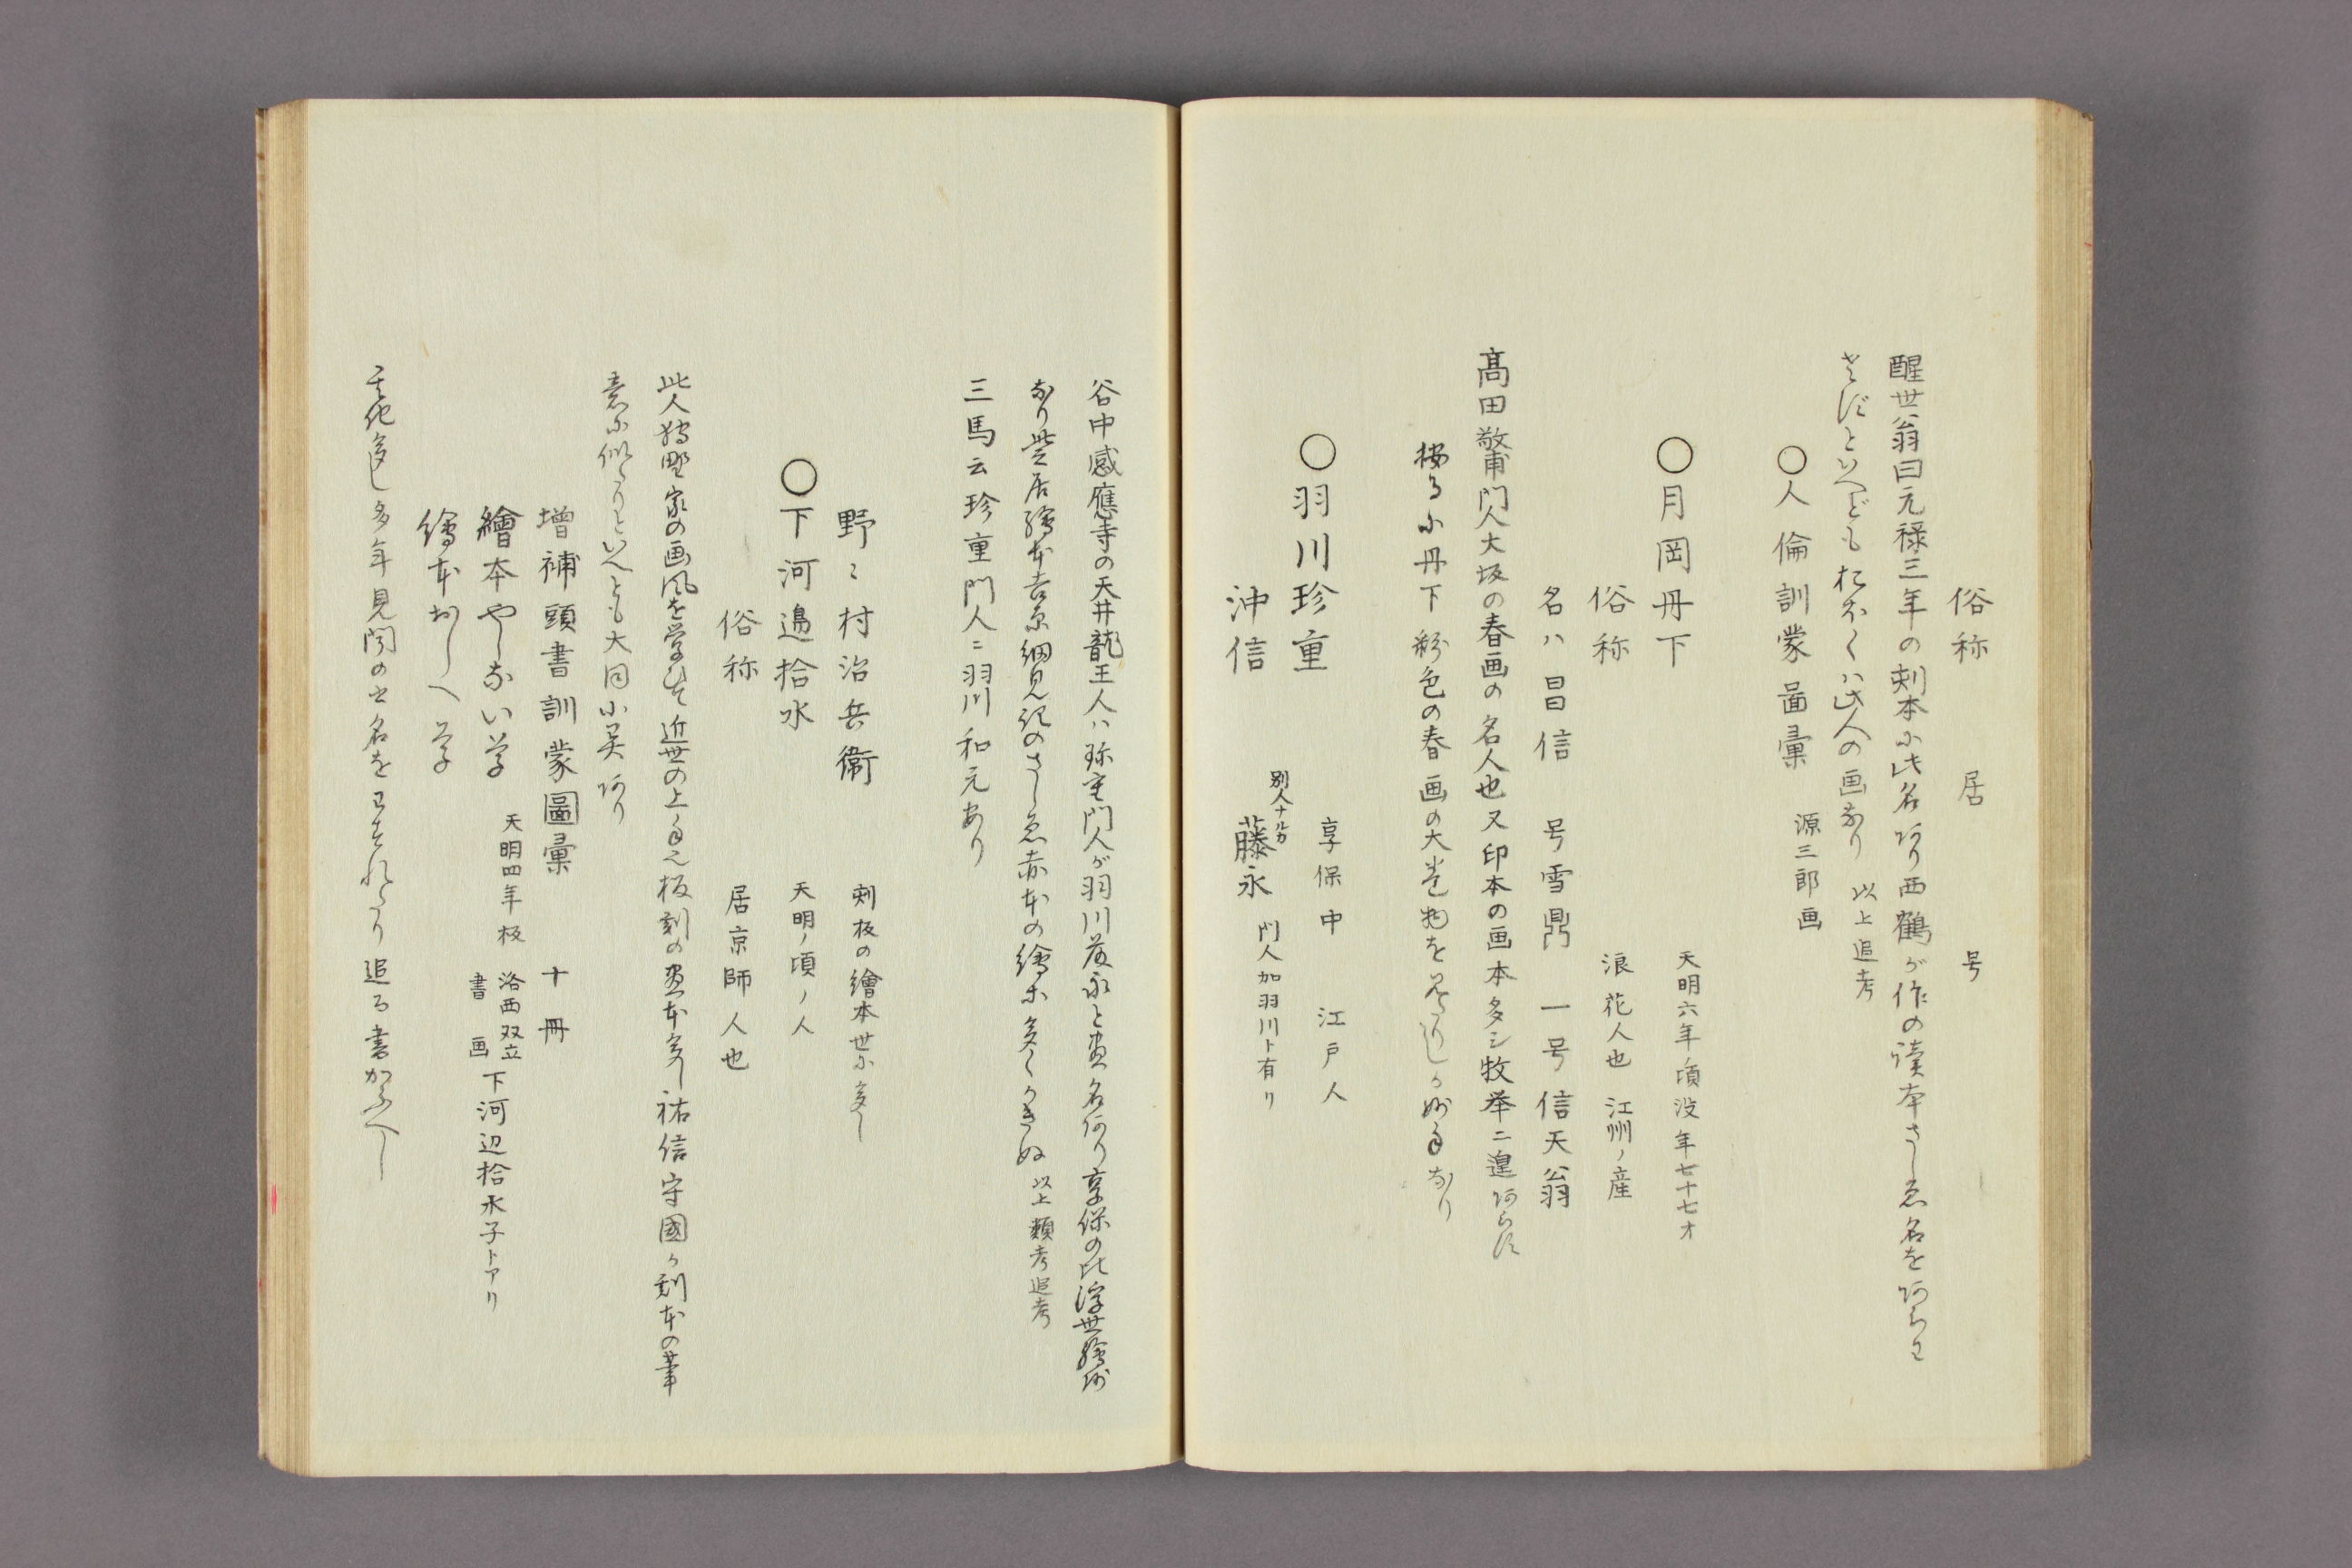 俗称　居　号
醒世翁曰元禄三年の刻本小此名阿り西鶴が作の読本さし画名を阿らわ
さずといへども おほくハ此人の画なり 以上追考
〇人倫訓蒙啚彙 源三郎画
〇月岡丹下 天明六年頃没年七十七才
俗称 浪花人也 江州ノ産
名ハ昌信 号雪鼎 一号信天翁
髙田敬甫門人大坂の春画の名人也又印本の画本多シ牧挙ニ遑阿らす
按る小丹下彩色の春画の大巻物を見たりしか妙手なり
〇羽川珍重 享保中 江戸人
沖信 別人ナルカ 藤永 門人加羽川ト有リ
谷中感應寺の天井龍王人ハ珍重門人が羽川藤永と画名阿り享保の比浮世繪師
なり芝居繪本吉原細見記のさし画赤本の繪等多くかきぬ 以上類考追考
三馬云珍重門人ニ羽川和元あり
野々村治兵衞 刻板の繪本世小多し
〇下河邉拾水 天明ノ頃ノ人
俗称 居京師人也
此人狩野家の画風を学ひて近世の上手也板刻の画本多し祐信守國か刻本の筆
意に似たりといへとも大同小異阿り
増補頭書訓蒙圖彙 十冊
繪本やしない草 天明四年板 洛西双立書画 下河辺拾水子トアリ
繪本おしへ草
其他多し多年見聞の書名をわすれたり追る書加ふへし